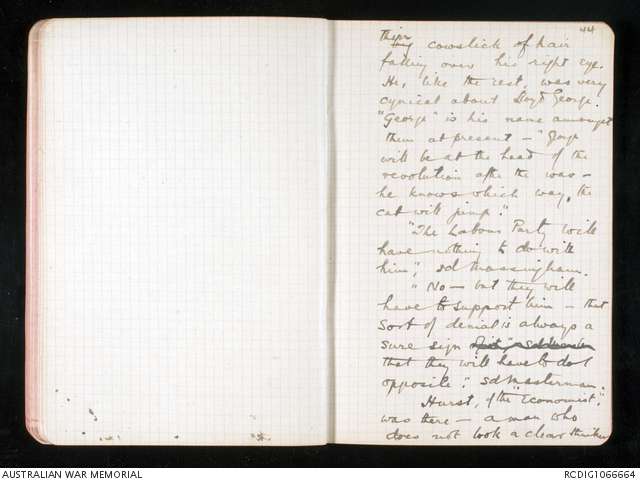 44
thin cowslick of hair
falling over his right eye.
He, like the rest, was very
cynical about Lloyd George.
"George" is his name amongst
them at present — "George
will be at the head of the
revolution after the war —
he knows which way, the
cat will jump."
"The Labour Party will
have nothing to do with
him", sd Massingham.
"No — but they will
have to support him — that
sort of denial is always a
sure sign
that they will have to do t
opposite". sd Masterman.
Hurst, of the "Economist",
was there — a man who
does not look a clear thinker
AUSTRALIAN WAR MEMORIAL
RCDIG1066664